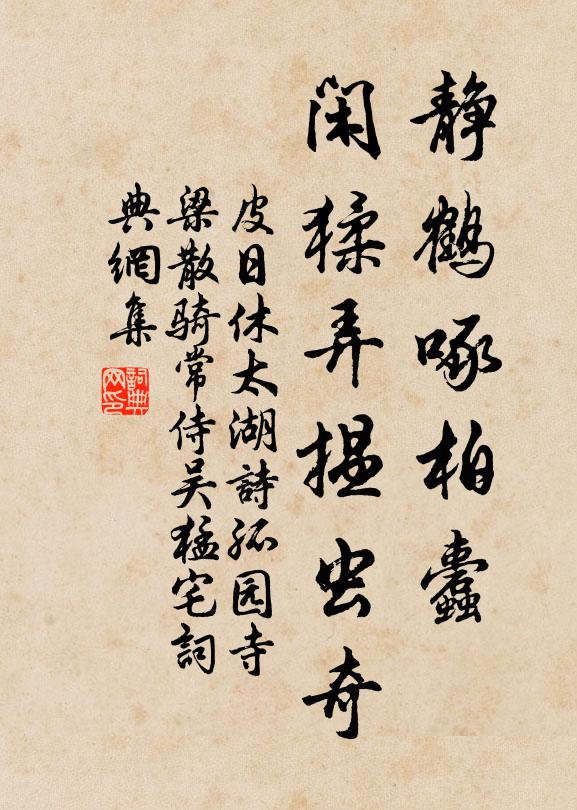 静鹤啄柏蠹
闲猱弄揾虫奇
皮日休太湖詩孤园寺
梁散骑常侍吴猛宅詞
典網集
詞典
网印